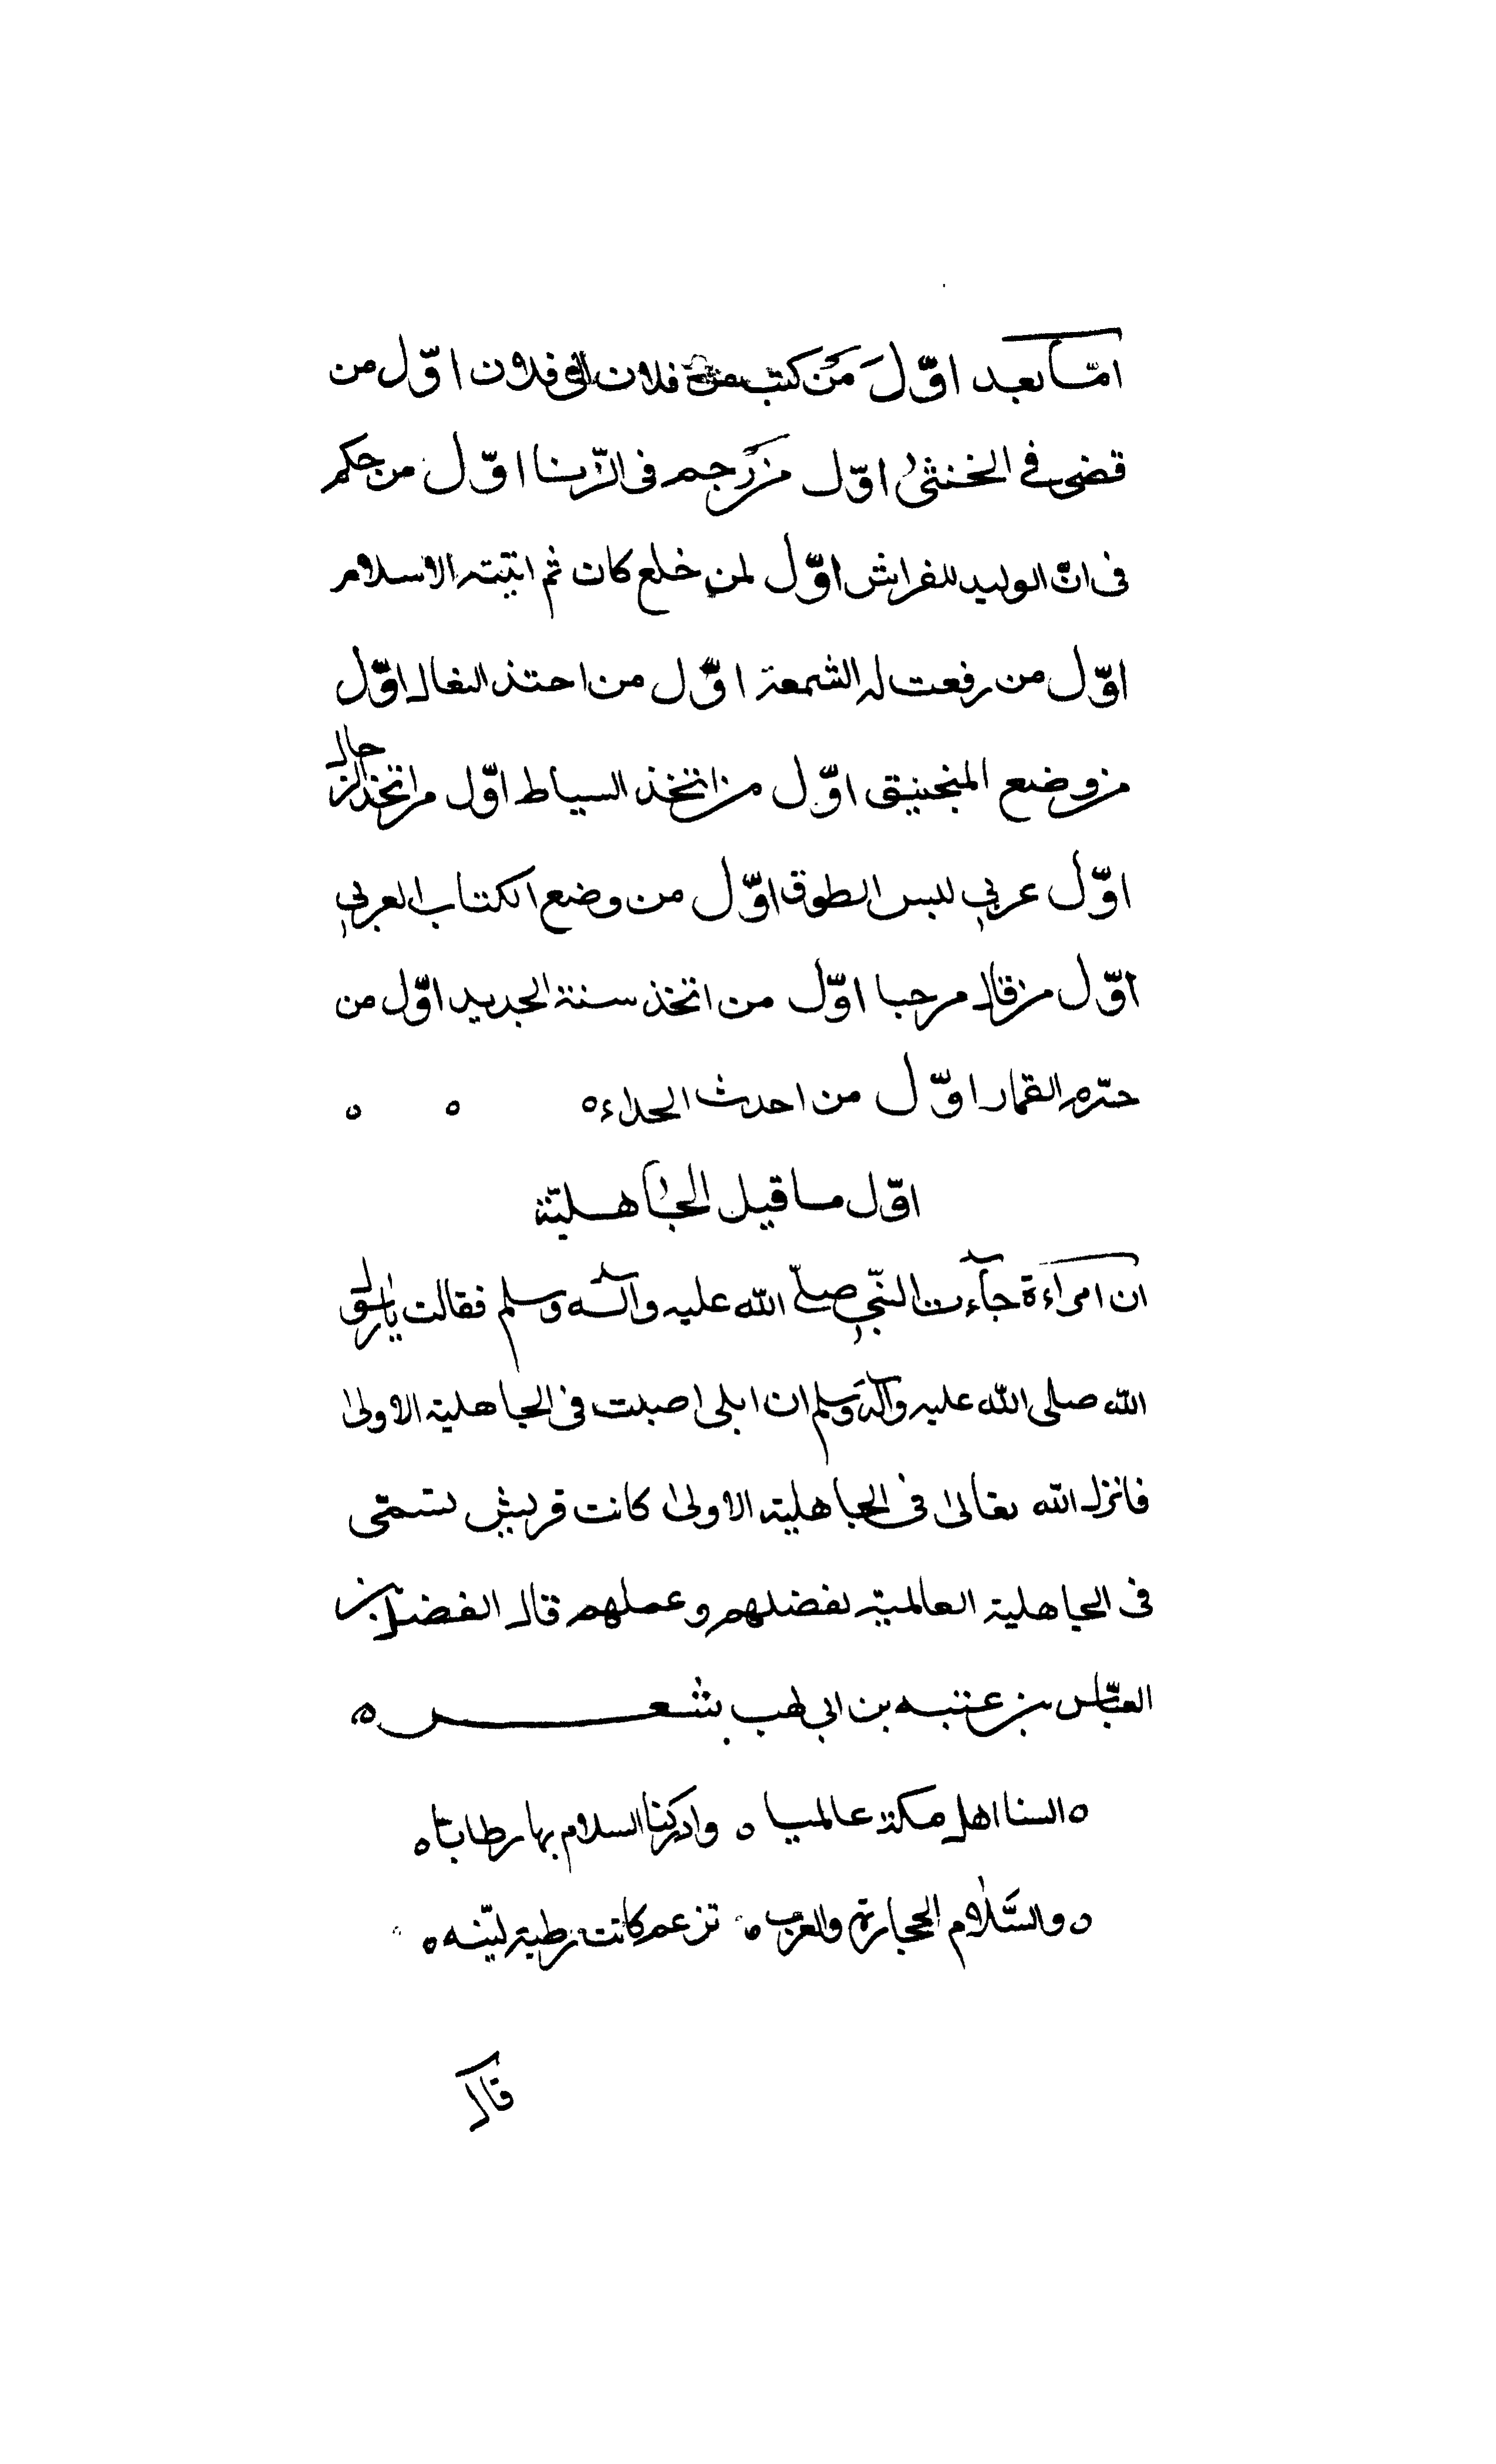 امّا بعد اوّل مَن كتب من فلان الى فلان اوّل من
قضى في الخنثى اوّل من رجم فى الزّنا اوّل من حكم
فى انّ الوليد للفراش اوّل لمن خلع كان ثم اثبته الاسلام
اوّل من رفعت له الشمعة اوّل من احتذ النعال اوّل
من وضع المنجنيق اوّل من اتخذ السياط اوّل من اتخذ الرحال
اوّل عربي لبس الطوق اوّل من وضع الكتاب العربي
اوّل من قال مرحبا اوّل من اتخذ سنة الجديد اوّل من
حرّم القمار اوّل من احدث الحداء ه ه ه
اوّل ما قيل الجاهليّة
ان امراءة جآءت النبّي صلّى الله عليه وآله وسلم فقالت يا رسول
الله صلى الله عليه وآله وسلم ان ابلى اصبلت فى الجاهلية الاولى
فانزل الله تعالى فى الجاهلية الاولى كانت قريش تسمّى
فى الجاهلية العالميّة لفضلهم وعملهم قال الفضل بن
العبّاس بن عتبه بن ابي لهب بشعر ه
ه السنا اهل مكة عالميا ه وادركنا السلام بها رطابا ه
ه والسَّلام الحجارة والعرب ه تزعم كانت رطبة ليّنه ه
قال